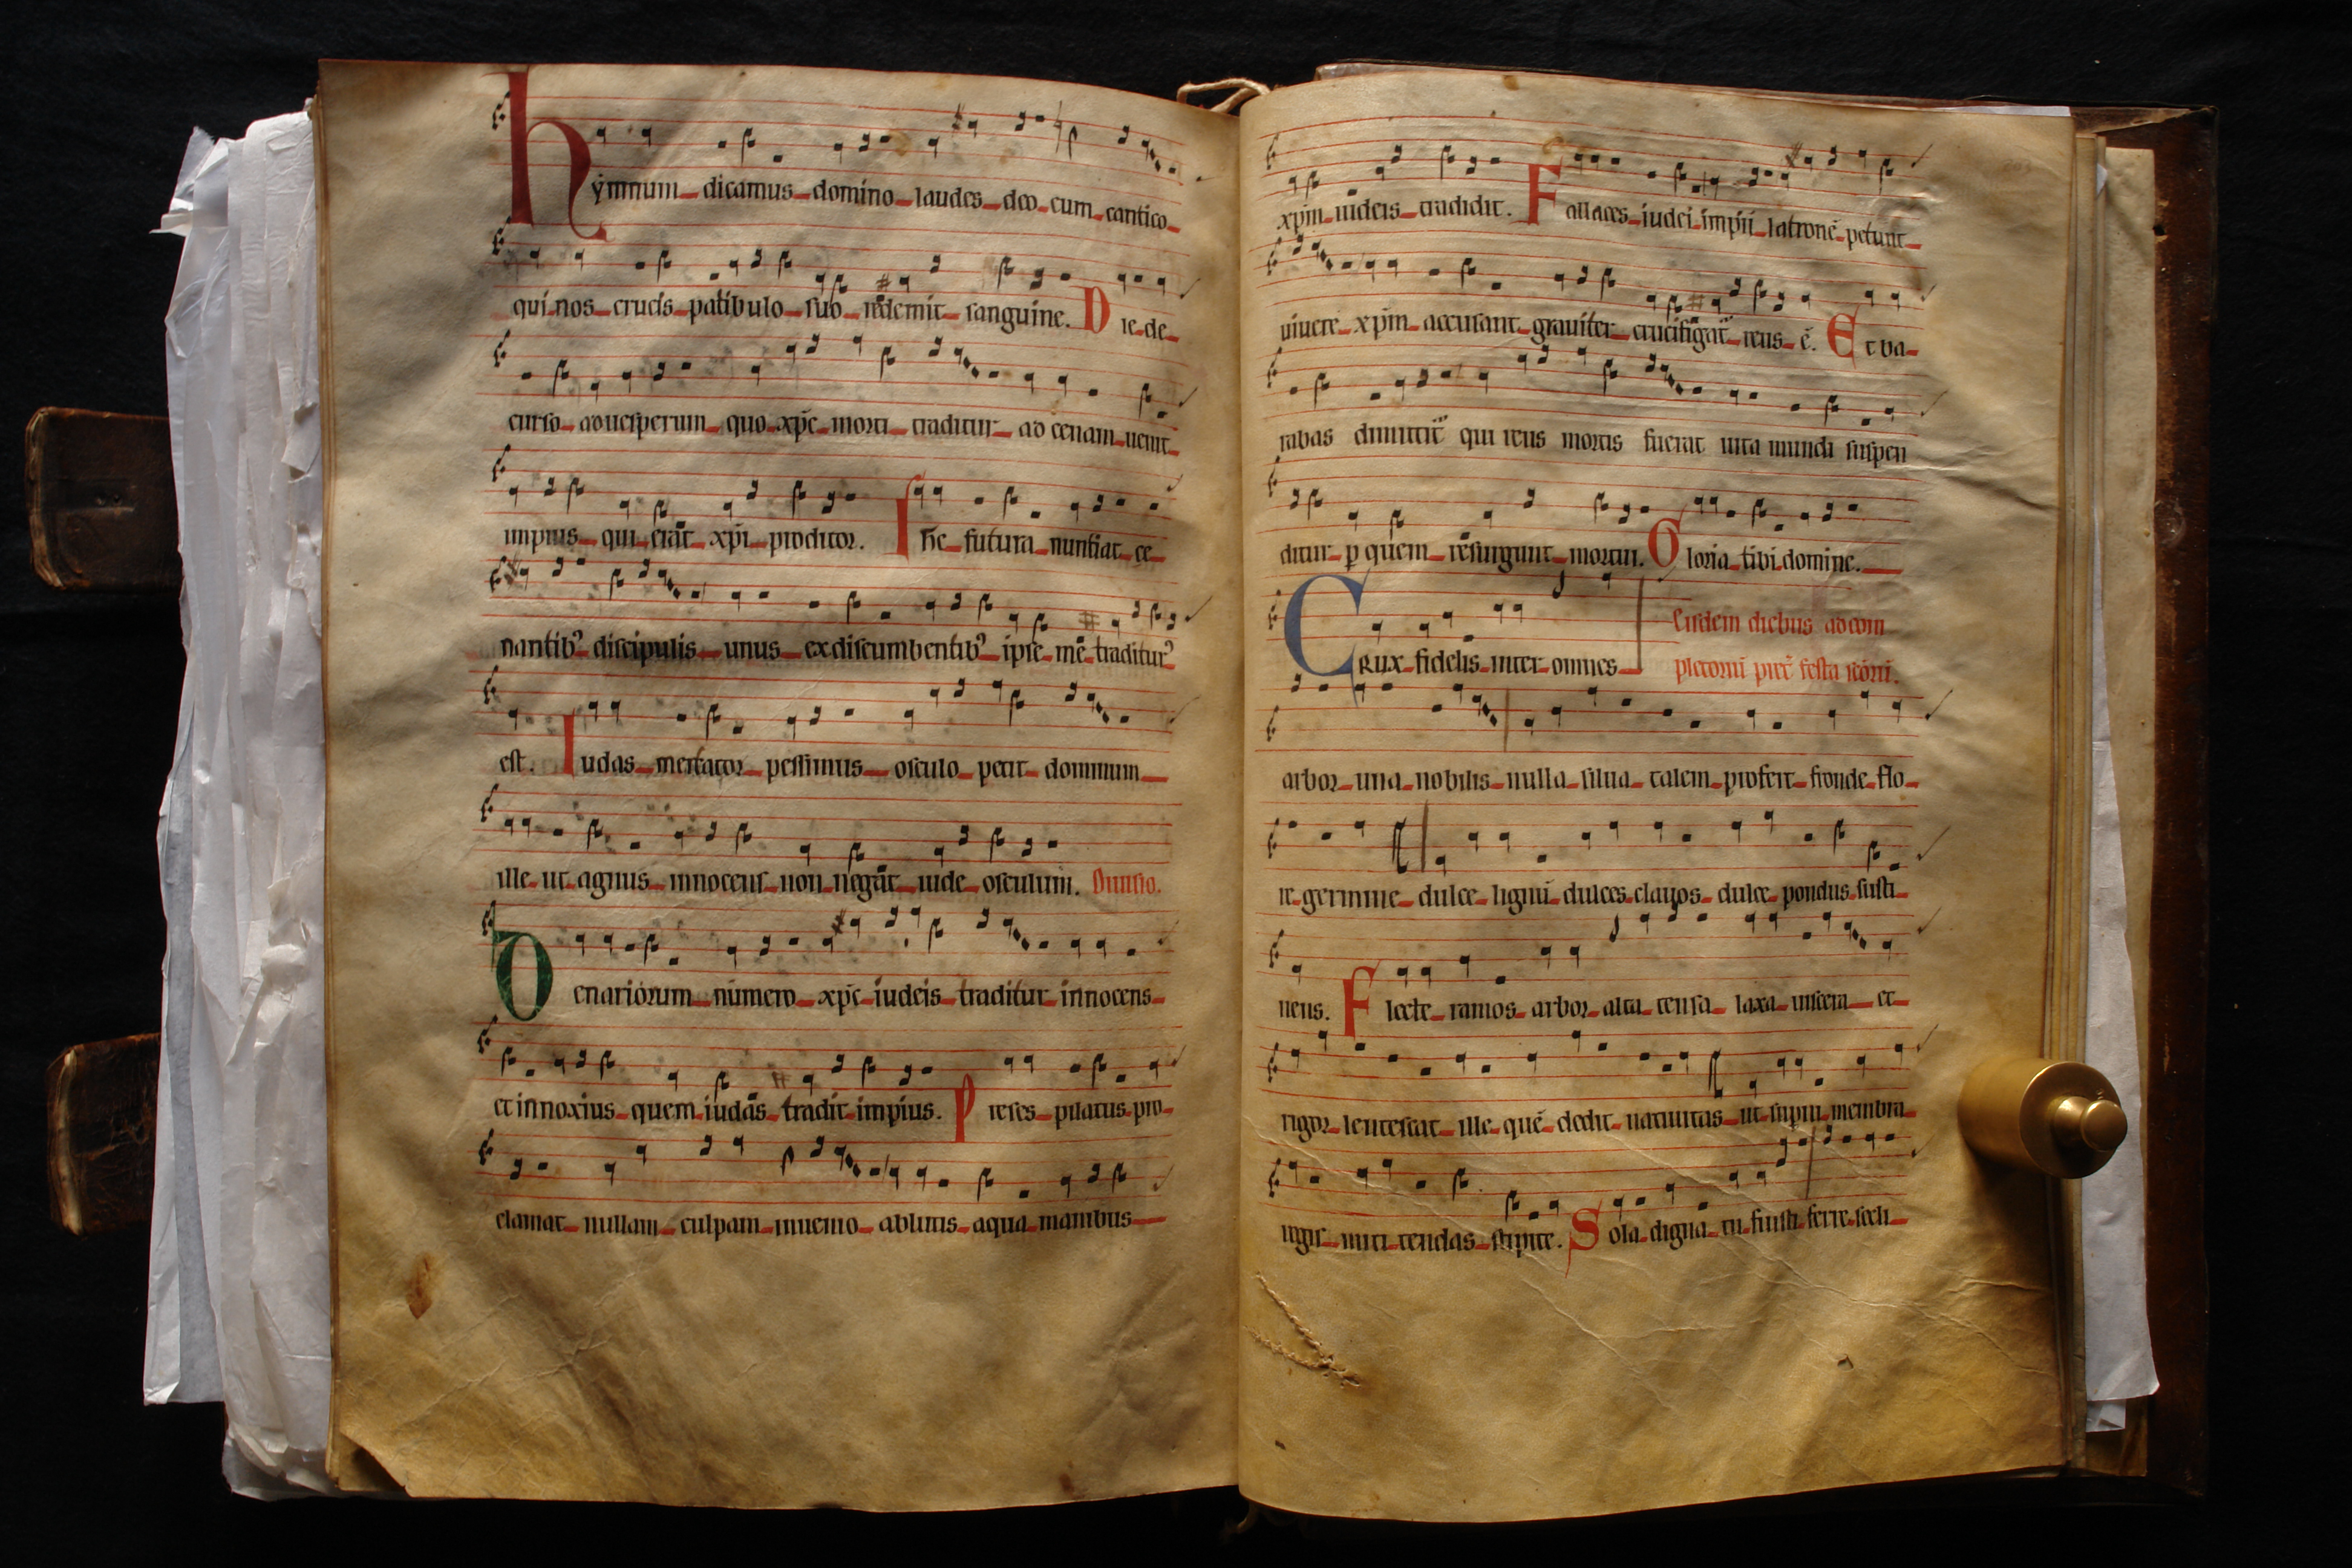 hymnum dicamus domino laudes deo cum cantico
qui nos crucis patibulo suo redemit sanguine. Die de
curso ad uesperum quo xp̄c morti traditur ad cenam uenit
impius qui erat xp̄i proditor. Ih̄c futura nuntiat ce
nantibꝰ discipulis unus ex discumbentibꝰ ipse me traditurꝰ
est. Iudas mercator pessimus osculo petit dominum
ille ut agnus innocens non negat iude osculum.
Denariorum numero xp̄c iudeis traditur innocens
et innoxius quem iudas tradit impius. Preses pilatus pro
clamat nullam culpam inuenio ablutis aqua manibus
xp̄m iudeis tradidit. Fallaces iudei impii latronē petunt
uiuere xp̄m accusant grauiter crucifigat̄ reus ē. Et ba
rabas dimittit̄ qui reus mortis fuerat uita mundi suspen
ditur ꝑ quem resurgunt mortui. Gloria tibi domine.
Crux fidelis inter omnes
Eisdem diebus ad com
pletoriū
arbor una nobilis nulla silua talem profert fronde flo
re germine dulce lignū dulces clauos dulce pondus susti
nens. Flecte ramos arbor alta tensa laxa uiscera et
rigor lentescat ille quē dedit natiuitas ut supni membra
regis miti tendas stipite. Sola digna tu fuisti ferre secli